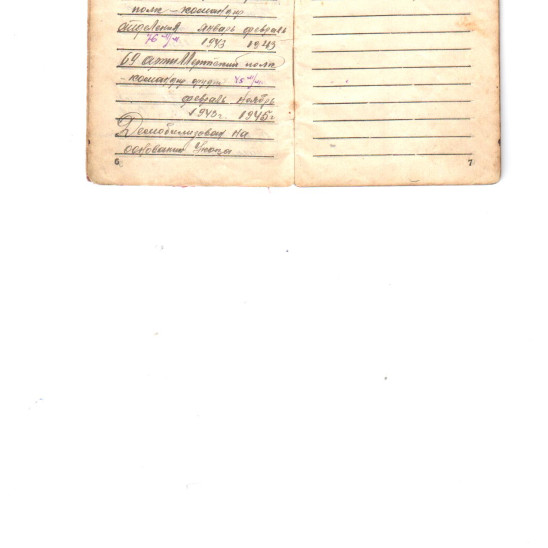 полк – командир
отделения январь февраль
76 м/м 1943 1943
69 артиллерийский полк
– командир орудия 45 м/м
февраль ноябрь
1943 г. 1945 г
Демобилизован на
основании Указа
6
7